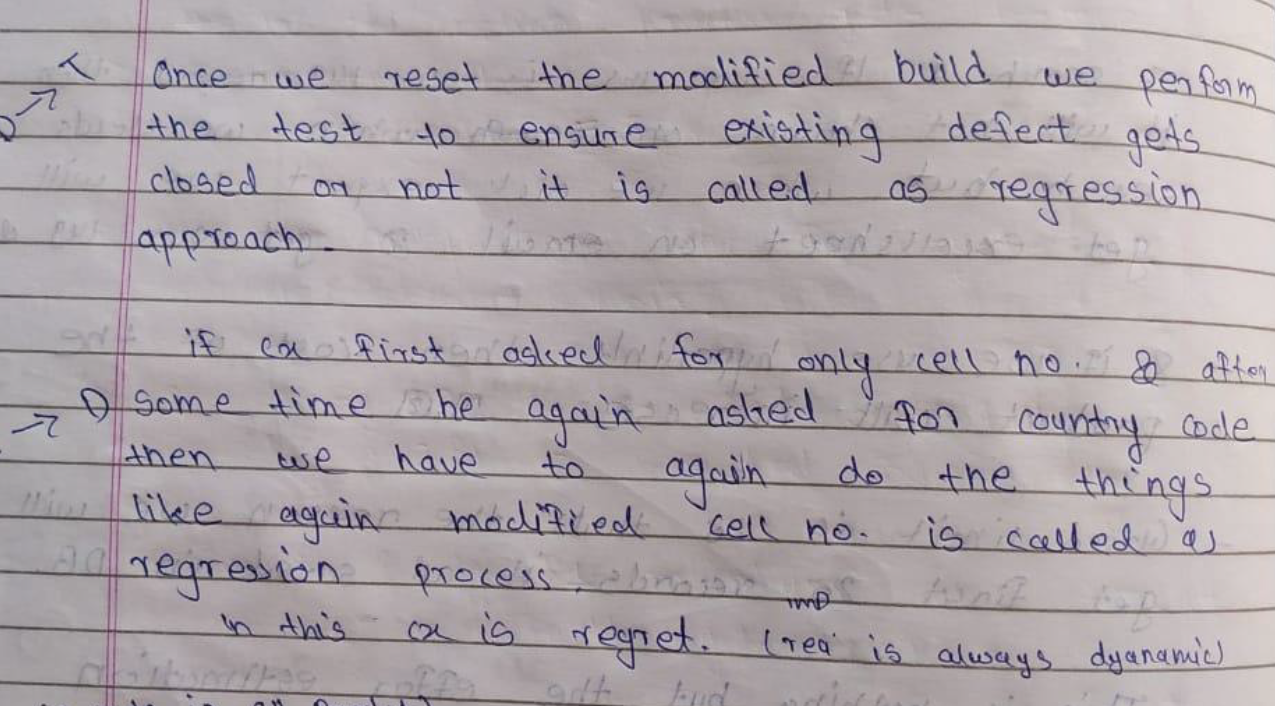 Once we reset the modified build we perform
the test to ensure existing defect gets
closed or not it is called as regression
approach.
if cx first asked for only cell no. & after
1) some time he again asked for country code
then we have to again do the things
like again modified cell no. is called as
regression process.
imp
in this cx is regret. (req is always dyanamic)